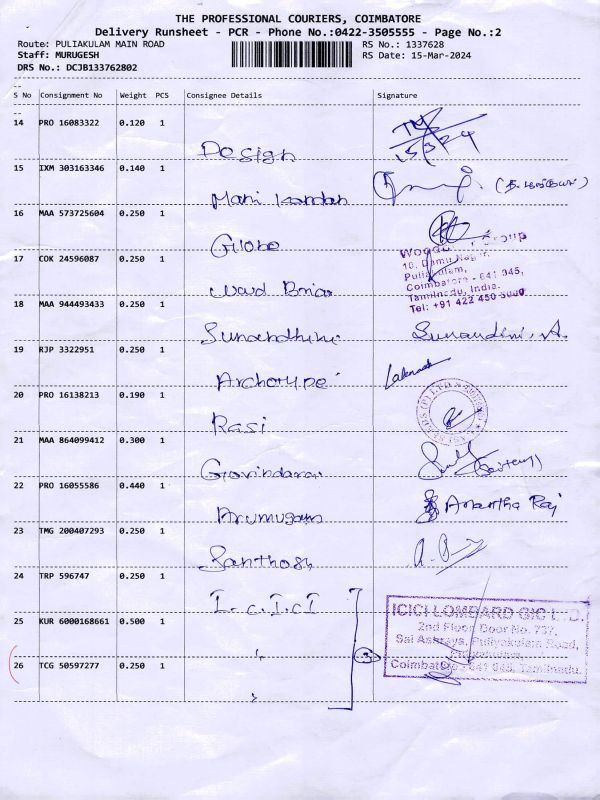 THE PROFESSIONAL COURIERS, COIMBATORE
Delivery Runsheet - PCR - Phone No.:0422-3505555 - Page No.:2
Route: PULIAKULAM MAIN ROAD RS No.: 1337628
Staff: MURUGESH RS Date: 15-Mar-2024
DRS No.: DCJB133762802
S No Consignment No Weight PCS Consignee Details Signature
14 PRO 16083322 0.120 1
Design
15 IXM 303163346 0.140 1
Mani kandan
16 MAA 573725604 0.250 1
Globe
17 COK 24596087 0.250 1
Group
10, Damu Nagar,
Puliakulam,
Coimbatore - 641 045,
Tamilnadu, India.
Tel: +91 422 450
Ward
18 MAA 944493433 0.250 1
Sunandhini Sunandini. A.
19 RJP 3322951 0.250 1
Archotype
20 PRO 16138213 0.190 1
Rasi
21 MAA 864099412 0.300 1
Govindaraj
22 PRO 16055586 0.440 1
Arumugam Anantha Raj
23 TMG 200407293 0.250 1
Santhosh
24 TRP 596747 0.250 1
I.C.I.C.I
25 KUR 6000168661 0.500 1
26 TCG 50597277 0.250 1
ICICI LOMBARD GIC LTD.
2nd Floor, Door No. 737,
Sai Ashraya, Puliyakulam Road,
Puliyakulam,
Coimbatore - 641 045, Tamilnadu.